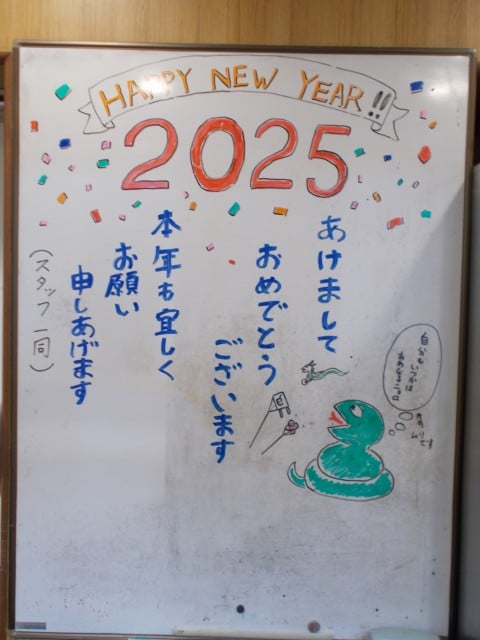 HAPPY NEW YEAR!!
2025
あけまして
おめでとう
ございます
本年も宜しく
お願い
申しあげます
(スタッフ一同)
自分もいつかは
ムリです